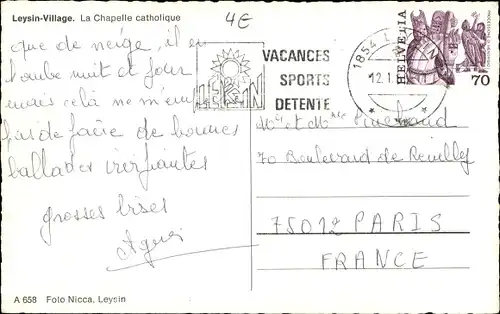 Leysin-Village. La Chapelle catholique
4€
que de neige, il en
tombe nuit et jour
mais cela ne m'em
pêche de faire de bonnes
ballades vivifiantes
grosses bises
Agnès
VACANCES
SPORTS
DETENTE
LEYSIN
1854 L
12.1.
HELVETIA
70
et
70 Boulevard de Reuilly
75012 PARIS
FRANCE
A 658 Foto Nicca, Leysin